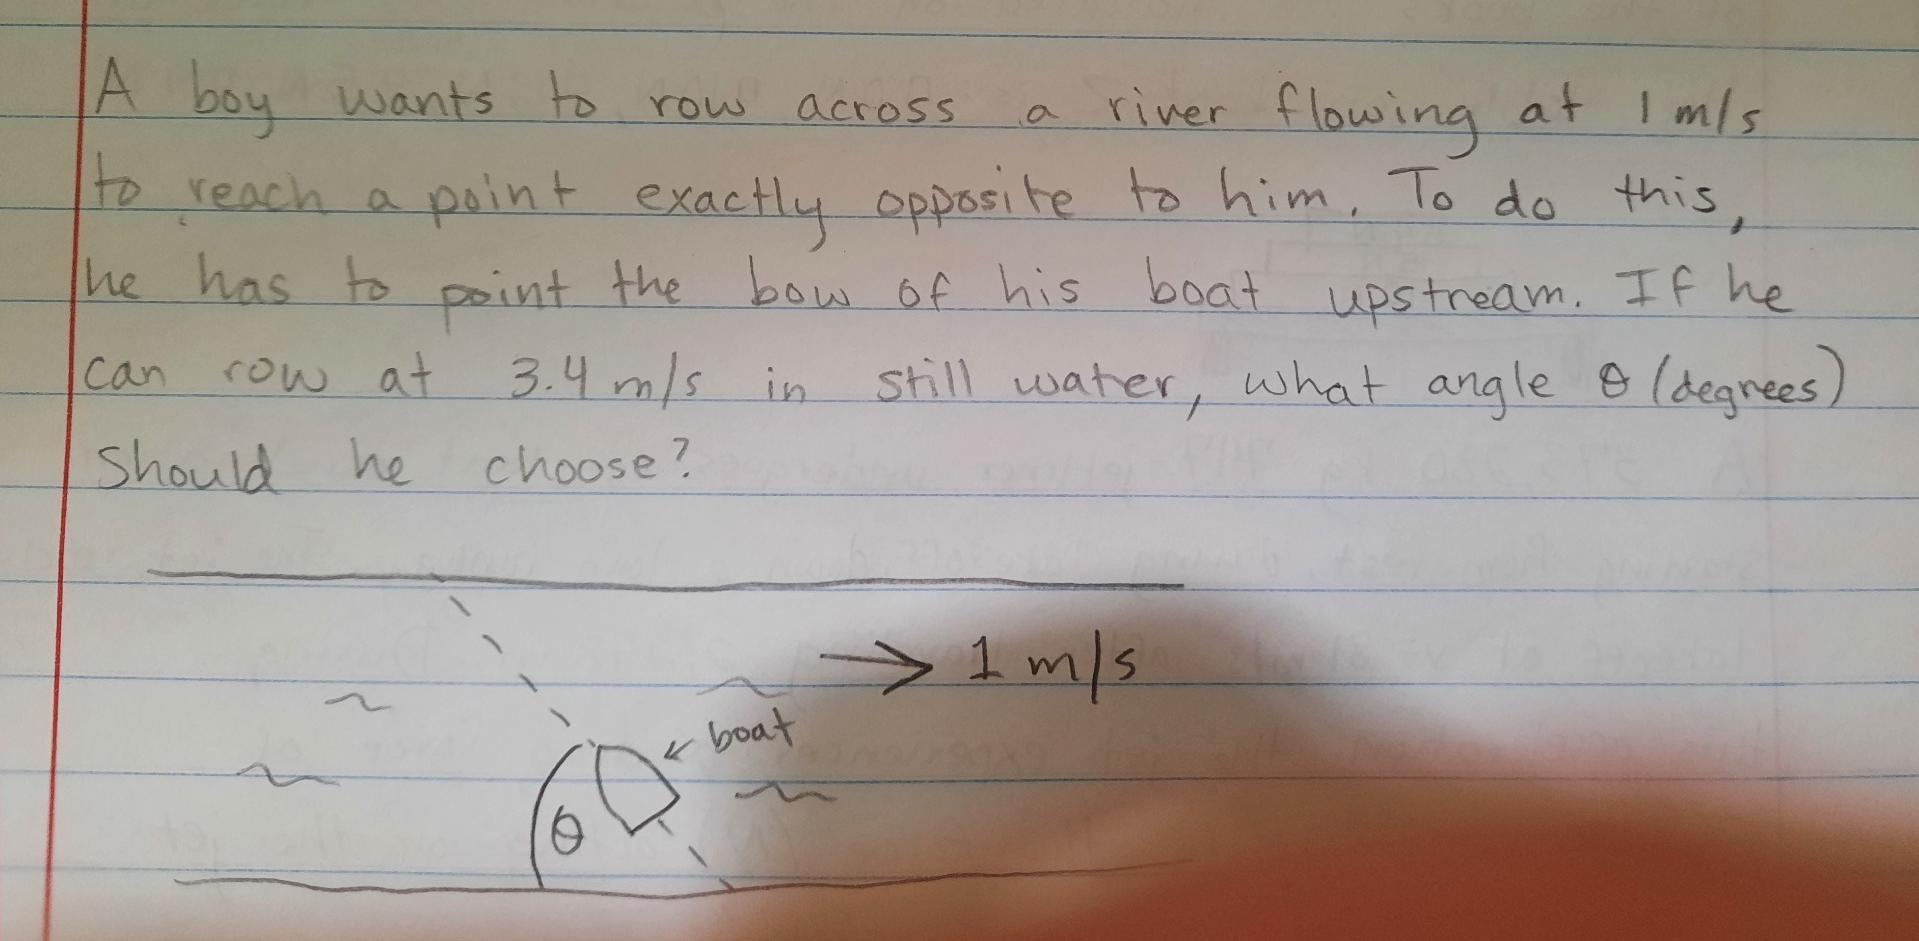 A boy wants to row across a river flowing at 1 m/s
to reach a point exactly opposite to him. To do this,
he has to point the bow of his boat upstream. If he
can row at 3.4 m/s in still water, what angle θ (degrees)
should he choose?
1 m/s
boat
θ